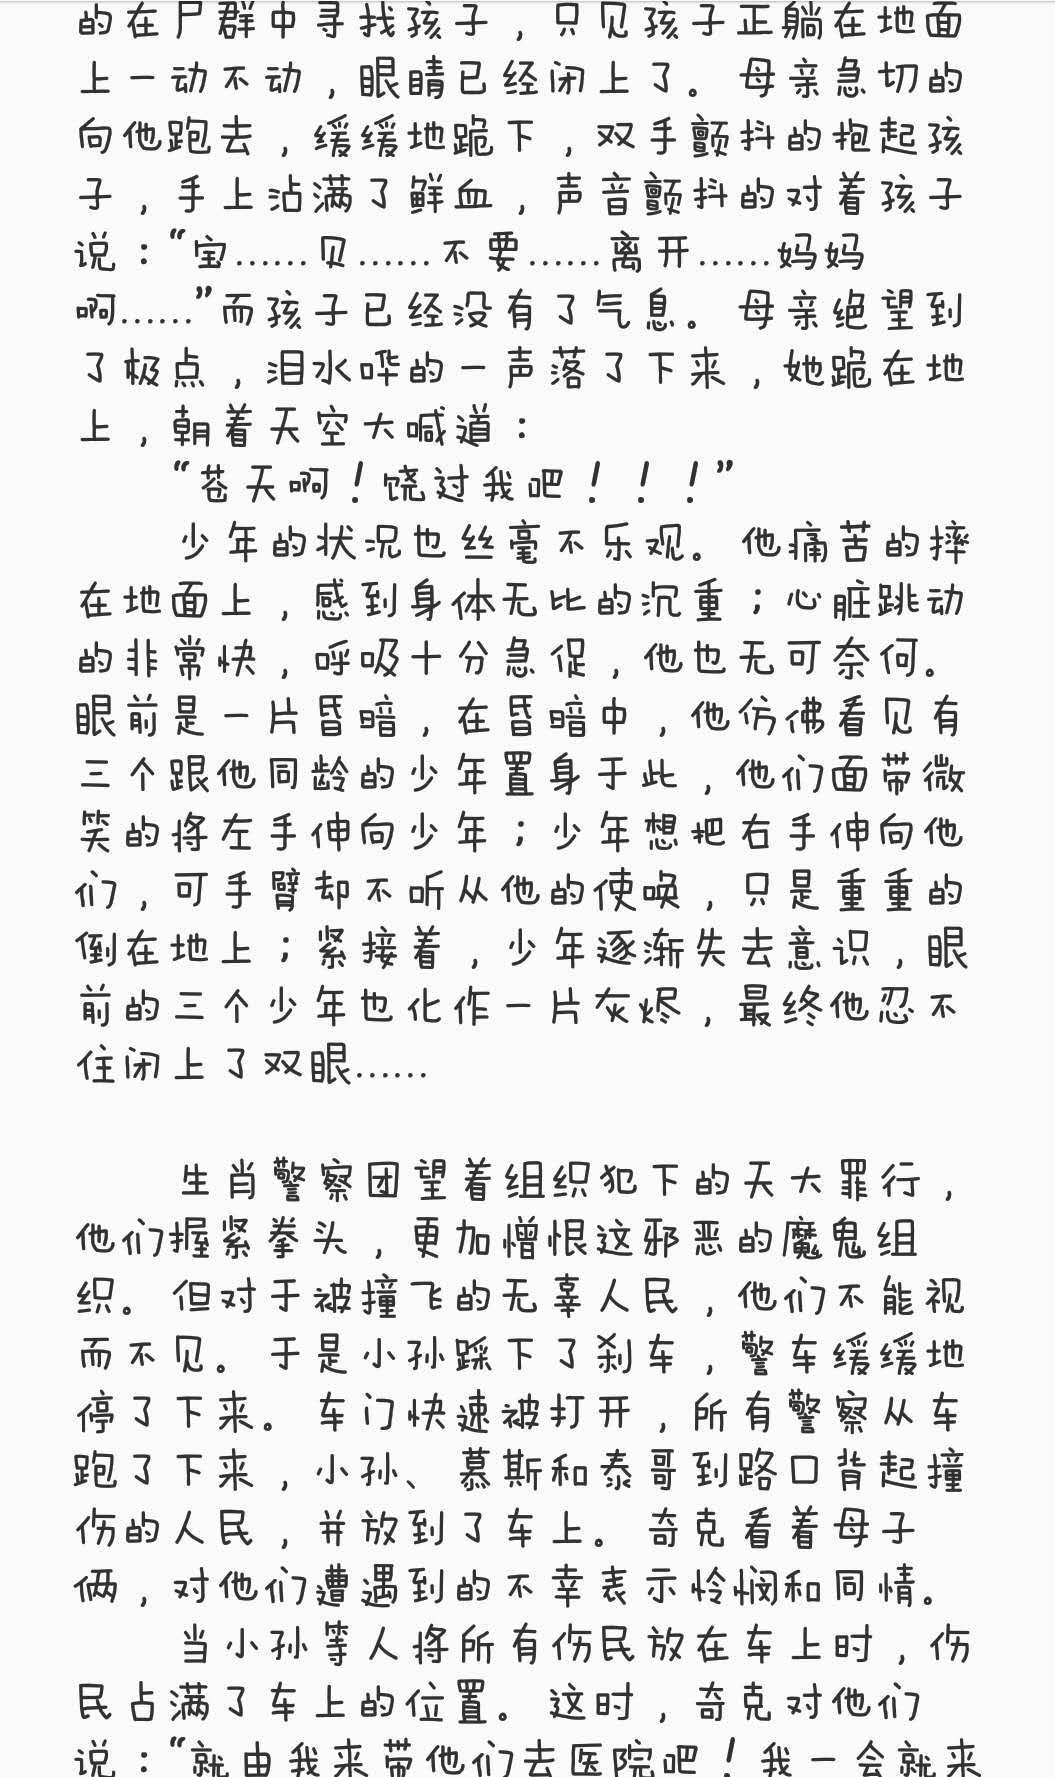 的在尸群中寻找孩子，只见孩子正躺在地面
上一动不动，眼睛已经闭上了。母亲急切的
向他跑去，缓缓地跪下，双手颤抖的抱起孩
子，手上沾满了鲜血，声音颤抖的对着孩子
说：“宝……贝……不要……离开……妈妈
啊……”而孩子已经没有了气息。母亲绝望到
了极点，泪水哗的一声落了下来，她跪在地
上，朝着天空大喊道：
“苍天啊！饶过我吧！！！”
少年的状况也丝毫不乐观。他痛苦的摔
在地面上，感到身体无比的沉重；心脏跳动
的非常快，呼吸十分急促，他也无可奈何。
眼前是一片昏暗，在昏暗中，他仿佛看见有
三个跟他同龄的少年置身于此，他们面带微
笑的将左手伸向少年；少年想把右手伸向他
们，可手臂却不听从他的使唤，只是重重的
倒在地上；紧接着，少年逐渐失去意识，眼
前的三个少年也化作一片灰烬，最终他忍不
住闭上了双眼……
生肖警察团望着组织犯下的天大罪行，
他们握紧拳头，更加憎恨这邪恶的魔鬼组
织。但对于被撞飞的无辜人民，他们不能视
而不见。于是小孙踩下了刹车，警车缓缓地
停了下来。车门快速被打开，所有警察从车
跑了下来，小孙、慕斯和泰哥到路口背起撞
伤的人民，并放到了车上。奇克看着母子
俩，对他们遭遇到的不幸表示怜悯和同情。
当小孙等人将所有伤民放在车上时，伤
民占满了车上的位置。这时，奇克对他们
说：“就由我来带他们去医院吧！我一会就来